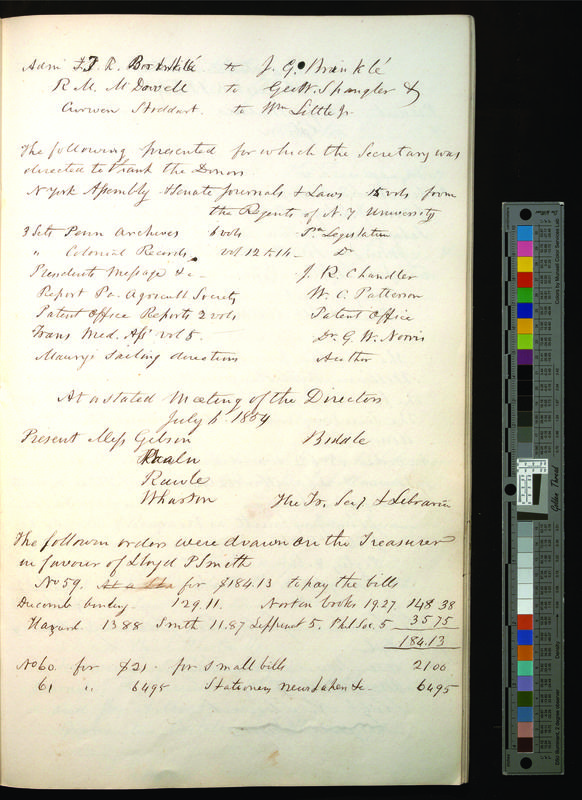 Adm to J. G. Brinklé
R. M. McDowell to Geo W. Spangler &
Curwen Stoddart to Wm Little Jr
The following presented for which the Secretary was
directed to thank the Donors
N York Assembly & Senate Journals & Laws 15 vols from
the Regents of N. Y University
3 Sets Penn Archives 6 vols Pa Legislature
" Colonial Records vol 12 to 14 - Do
Presidents Message &c - J. R. Chandler
Report Pa. Agricult Society W. C. Patterson
Patent Office Reports 2 vols Patent Office
Trans Med. Ass vol 5. Dr. G. W. Norris
Maurys Sailing directions Author
At a stated Meeting of the Directors
July 6 1854
Present Mess Gibson Biddle
Rawle
Wharton The Tr, Secy. & Librarian
The followin orders were drawn on the Treasurer
in favour of Lloyd P Smith
No 59. for $184.13 to pay the bills
Ducomb binding 129.11. Norton books 19.27. 148 38
Hazard 13 88 Smith 11.87 Lippincot 5. Phil Soc. 5 35 75
184.13
No 60 for $21 - for small bills 21 00
61 " 64 95 Stationery newspapers &c - 64 95